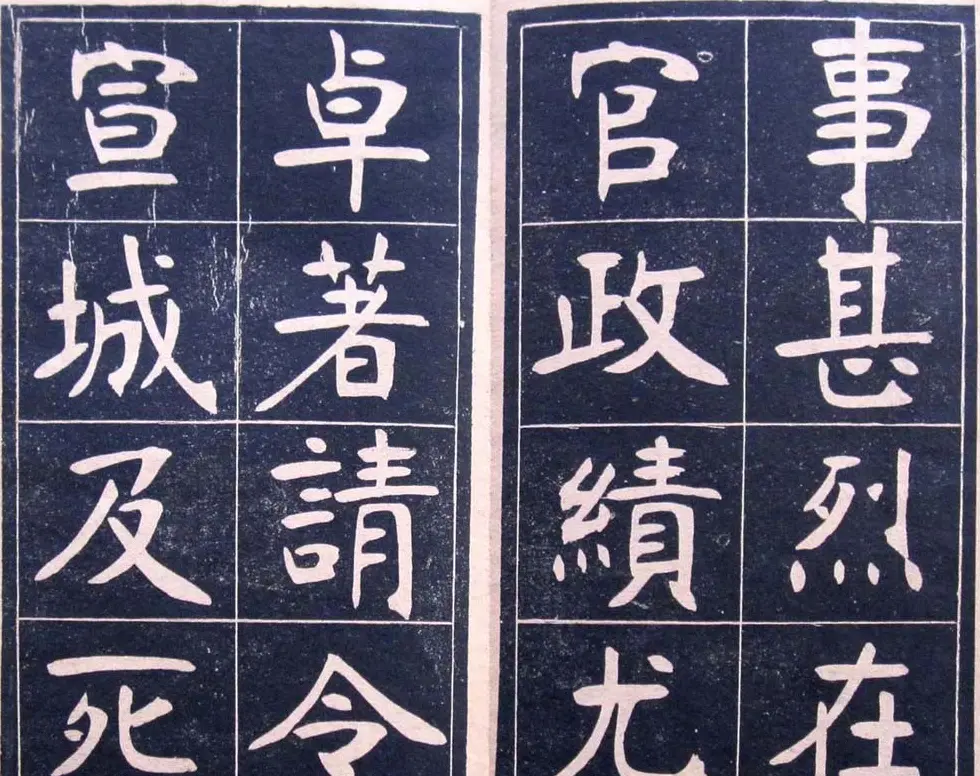 事甚烈在
官政績尤
卓著請令
宣城及死